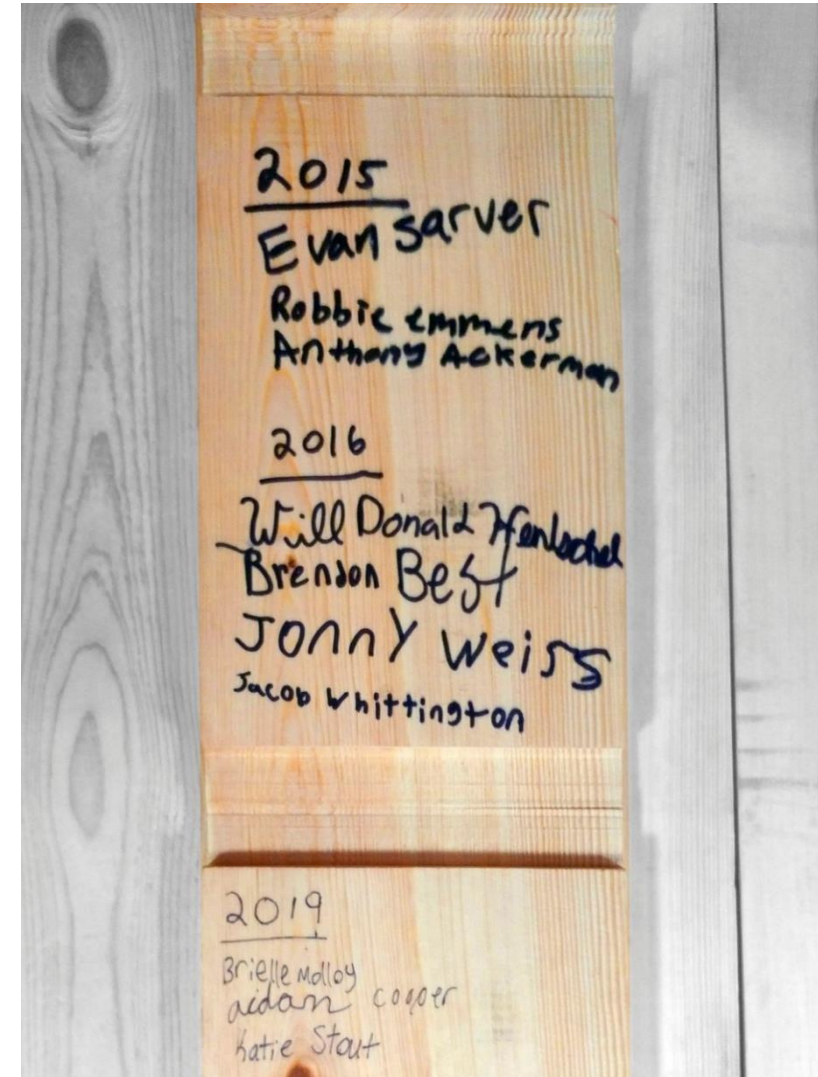 2015
Evan Sarver
Robbie emmens
Anthony Ackerman
2016
Will Donald Hentschel
Brendon Best
Jonny Weiss
Jacob Whittington
2019
Brielle Molloy
aidan cooper
Katie Stout